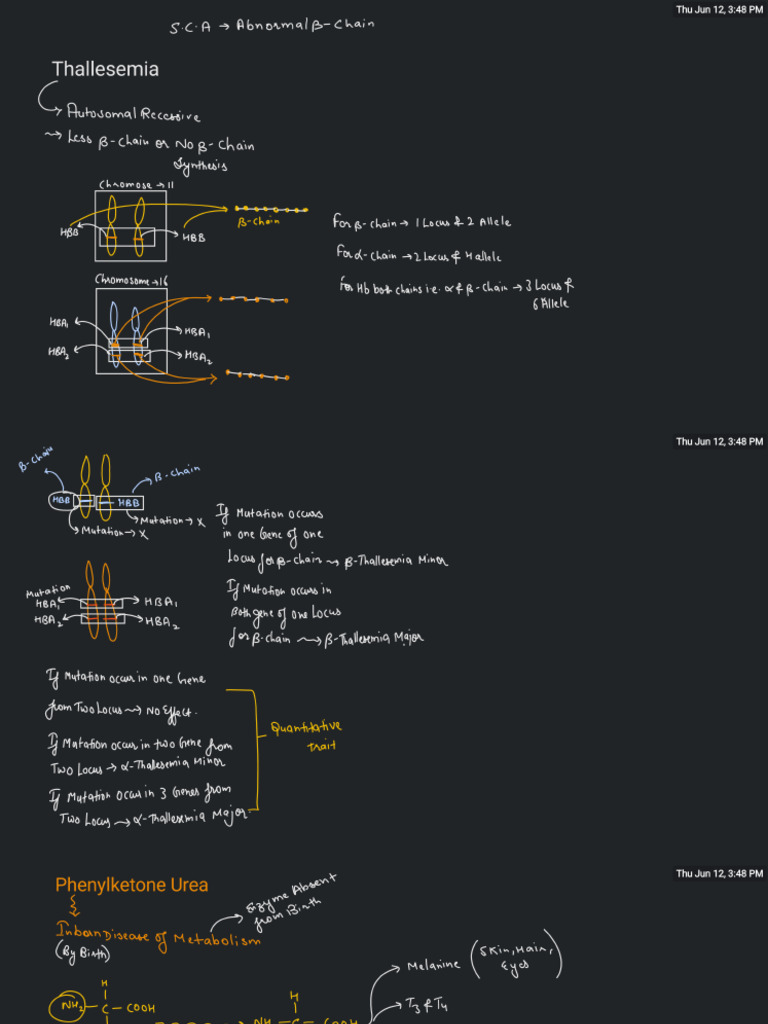 Thu Jun 12, 3:48 PM
S.C.A → Abnormal β-Chain
Thallesemia
Autosomal Recessive
Less β-Chain or No β-Chain
Synthesis
Chromose → 11
HBB
HBB
β-Chain
For β-chain → 1 Locus & 2 Allele
For α-Chain → 2 Locus & 4 allele
For Hb both chains i.e. α & β-Chain → 3 Locus &
6 Allele
Chromosome → 16
HBA1
HBA1
HBA2
HBA2
Thu Jun 12, 3:48 PM
β-Chain
β-Chain
HBB
HBB
Mutation → X
Mutation → X
If Mutation occurs
in one Gene of one
Locus for β-chain → β-Thallesemia Minor
If Mutation occurs in
Both gene of one Locus
for β-chain → β-Thallesemia Major
Mutation
HBA1
HBA1
HBA2
HBA2
If Mutation occur in one Gene
from Two Locus → No Effect.
If Mutation occur in two Gene from
Two Locus → α-Thallesemia Minor
If Mutation occur in 3 Genes from
Two Locus → α-Thallesemia Major
Quantitative
Trait
Thu Jun 12, 3:48 PM
Phenylketone Urea
Enzyme Absent
from Birth
Inborn Disease of Metabolism
(By Birth)
Melanine (Skin, Hair,
Eyes)
T3 & T4
H
NH2 – C – COOH
H
NH – C – COOH